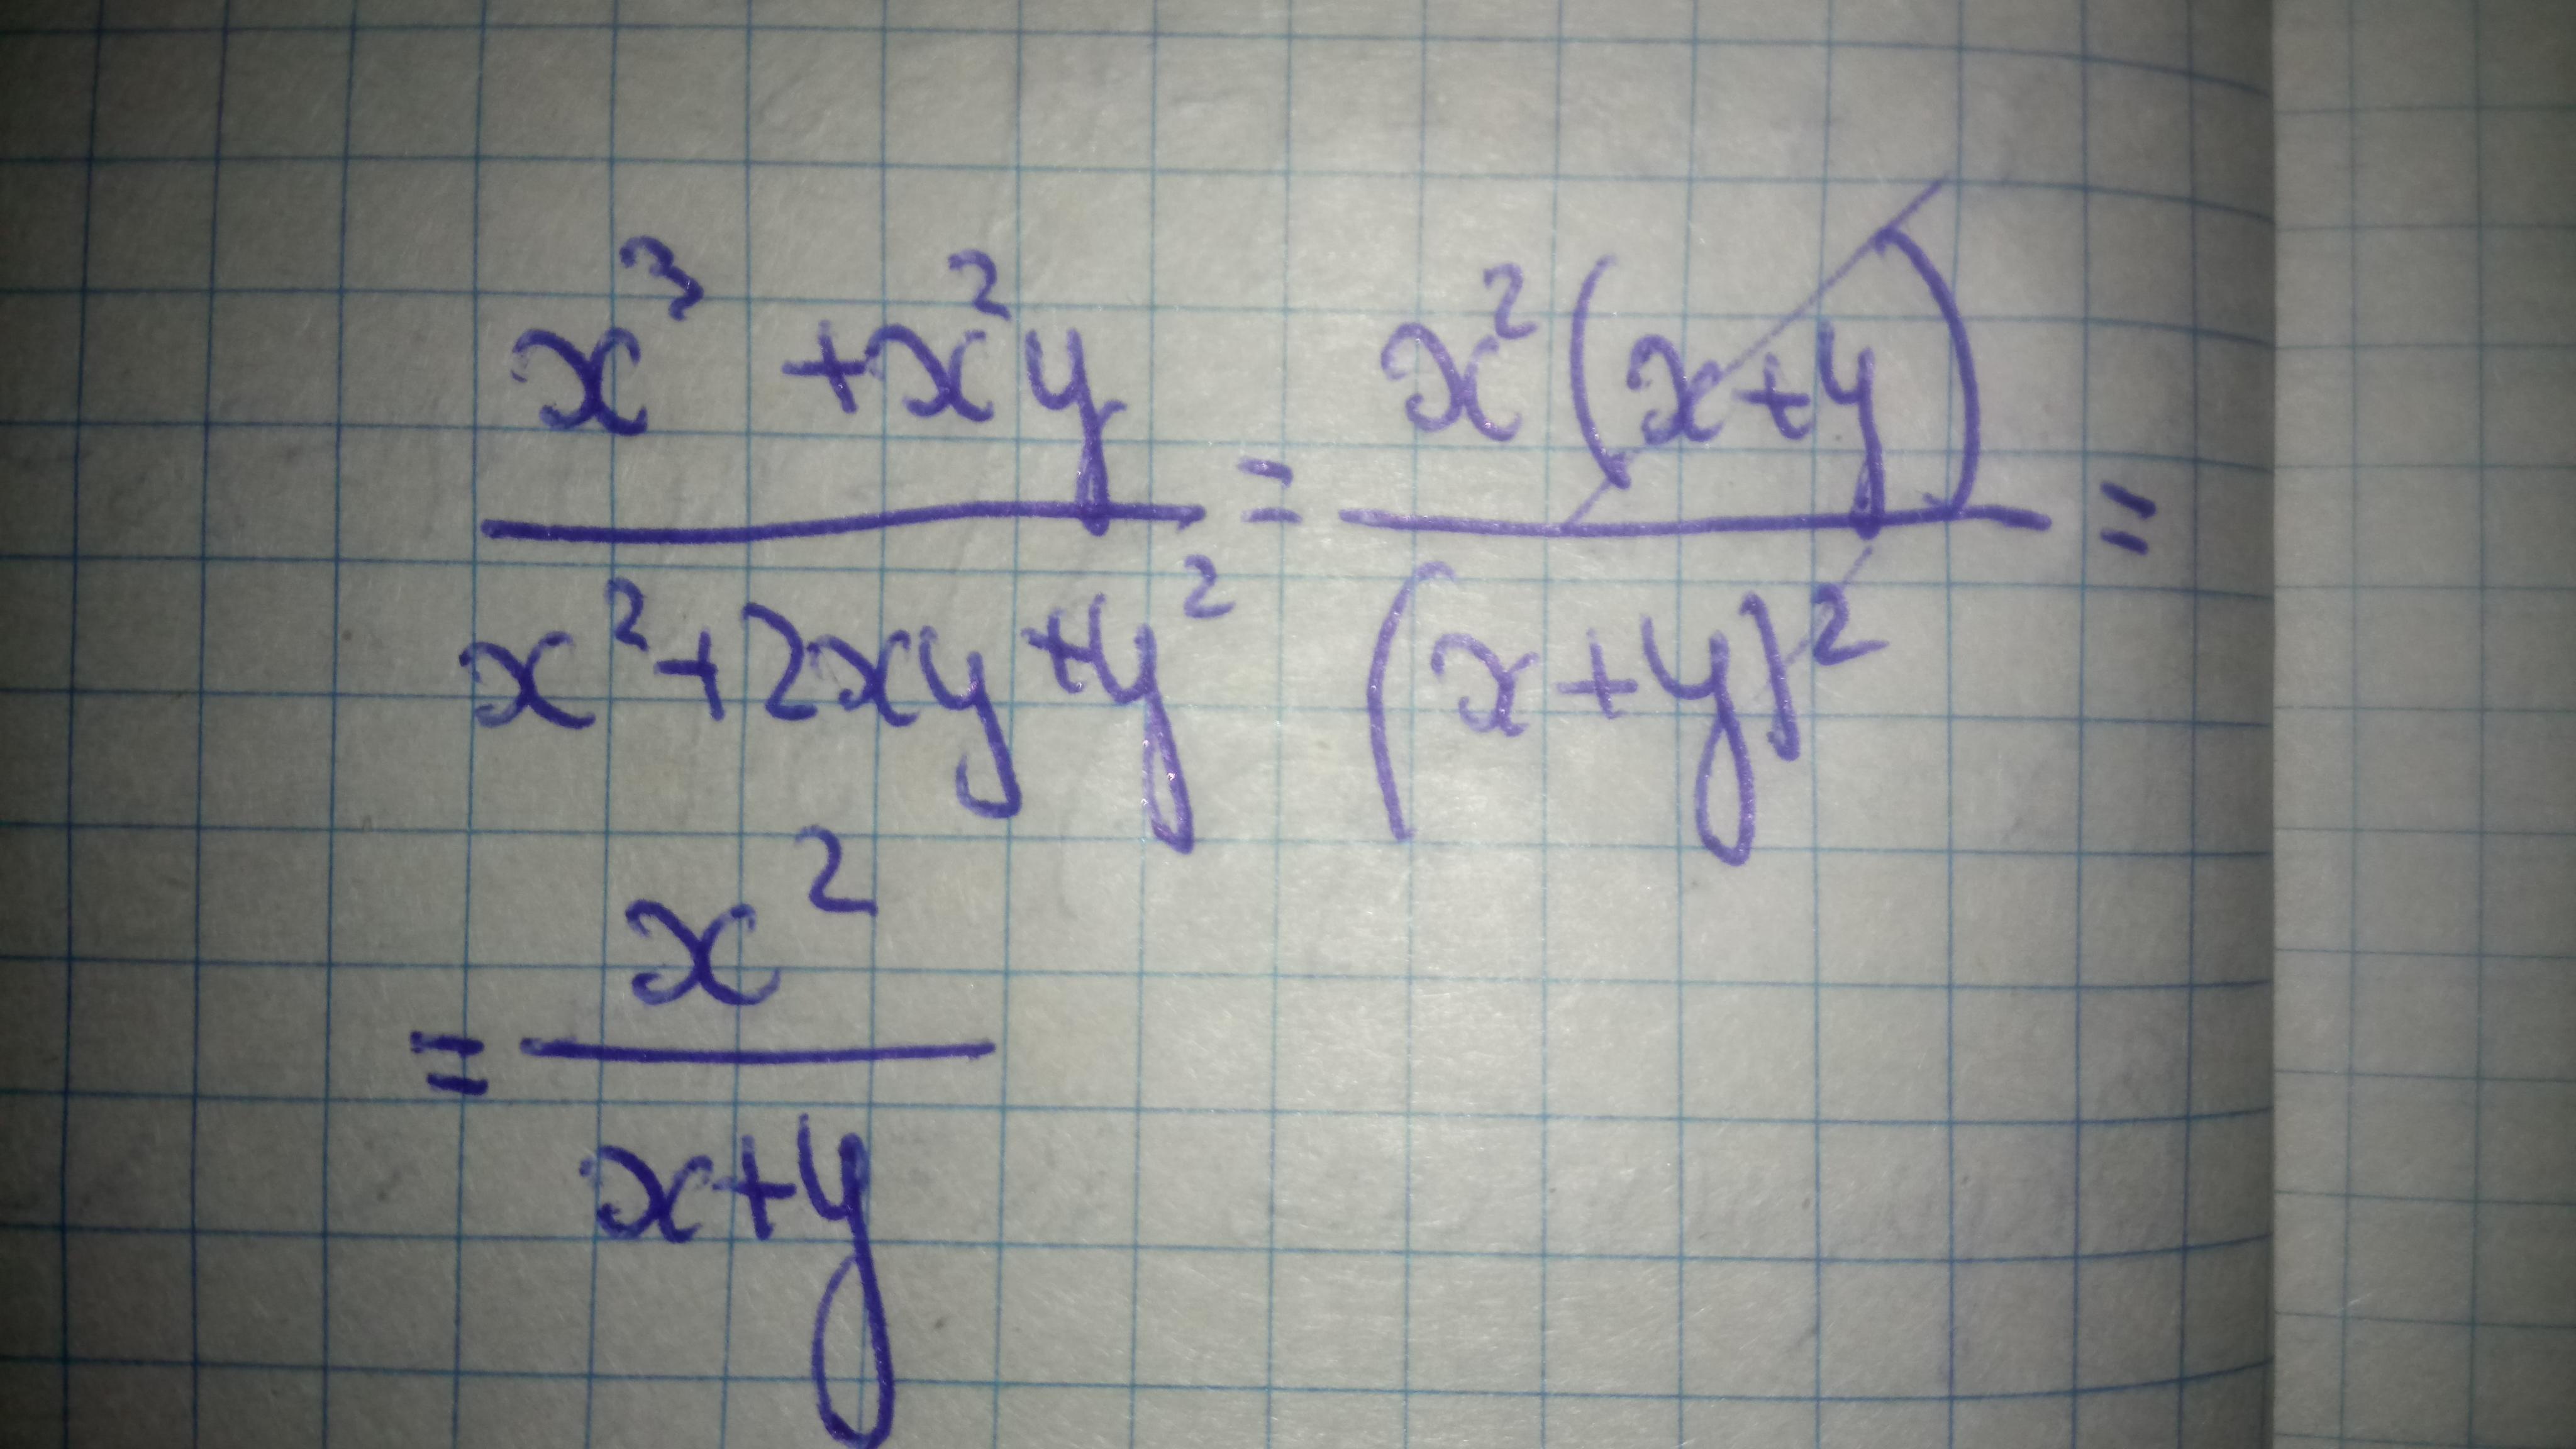 (x³ + x²y)/(x² + 2xy + y²) = x²(x+y)/(x+y)² =
= x²/(x+y)